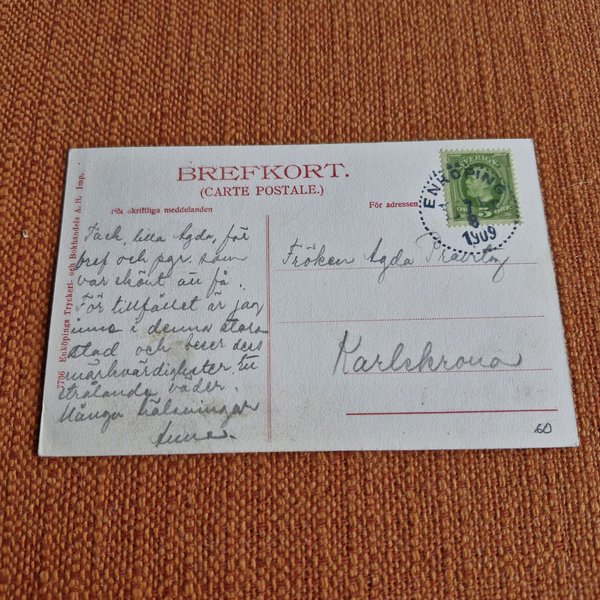 BREFKORT.
(CARTE POSTALE.)
För skriftliga meddelanden
För adressen
SVERIGE
ENKÖPING
7
6
1909
7786 Enköpings Tryckeri- och Bokhandels A. B. Imp.
Tack, lilla Agda, för
bref och pgr. som
var skönt att få.
För tillfället är jag
inne i denna stora
stad och beser dess
märkvärdigheter, i
strålande väder.
Många hälsningar
Fröken Agda
Karlskrona
60